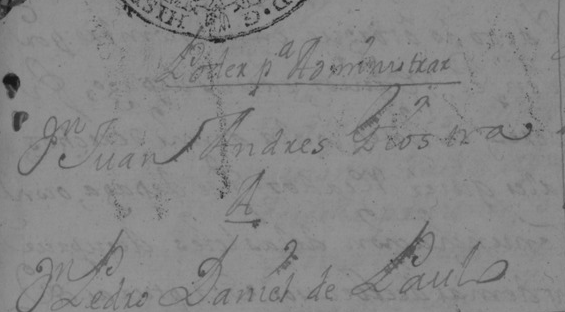 Poder pª Administrar
Jn Juan Andres
A
Jn Pedro Daniel de Paul